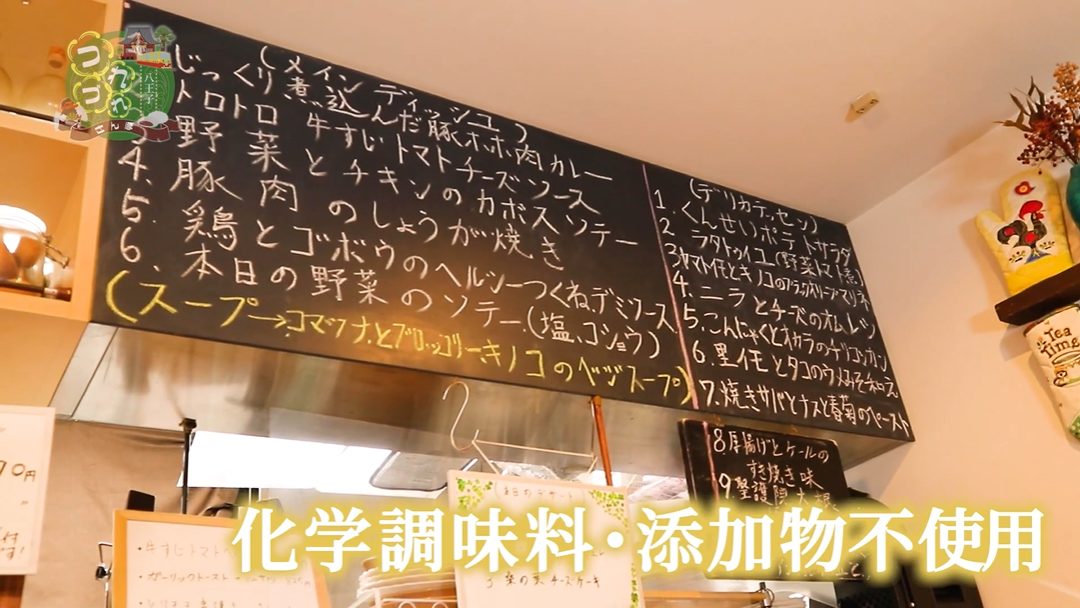 つれづれ
八王子
さんぽ
(メインディッシュ)
じっくり煮込んだ豚ホホ肉カレー
トロトロ牛すじトマトチーズソース
野菜とチキンのカポスソテー
4. 豚肉のしょうが焼き
5. 鶏とゴボウのヘルシーつくね、デミソース
6. 本日の野菜のソテー(塩、コショウ)
(スープ→コマツナとブロッコリー、キノコのベジスープ)
(デリカテッセン)
1. くんせいポテトサラダ
2. ラタトゥイユ(野菜トマト煮)
4. ニラとチーズのオムレツ
5. こんにゃくとオカラのチリコンカン
6. 里イモとタコのウメみそ
7. 焼きサバとナスと春菊のペースト
8. 厚揚げとケールの
すき焼き味
9. 聖護院大根
70円
・牛すじトマト
・ガーリックトースト
(本日のデザート)
チーズケーキ
Tea
Time
化学調味料・添加物不使用